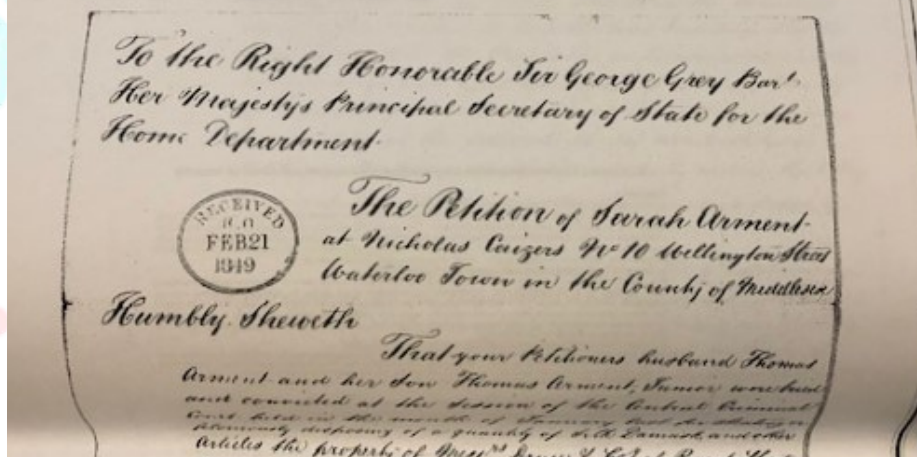 To the Right Honorable Sir George Grey Bart
Her Majestys Principal Secretary of State for the
Home Department
RECEIVED
H.O
FEB21
1849
The Petition of Sarah Arment
at Nicholas Caizers No 10 Wellington Street
Waterloo Town in the County of Middlesex
Humbly Sheweth
That your Petitioners husband Thomas
Arment and her Son Thomas Arment, Junior were tried
and convicted at the Session of the Central Criminal
Court held in the month of January last for stealing or
feloniously disposing of a quantity of Silk Damask and other
Articles the property of Messrs